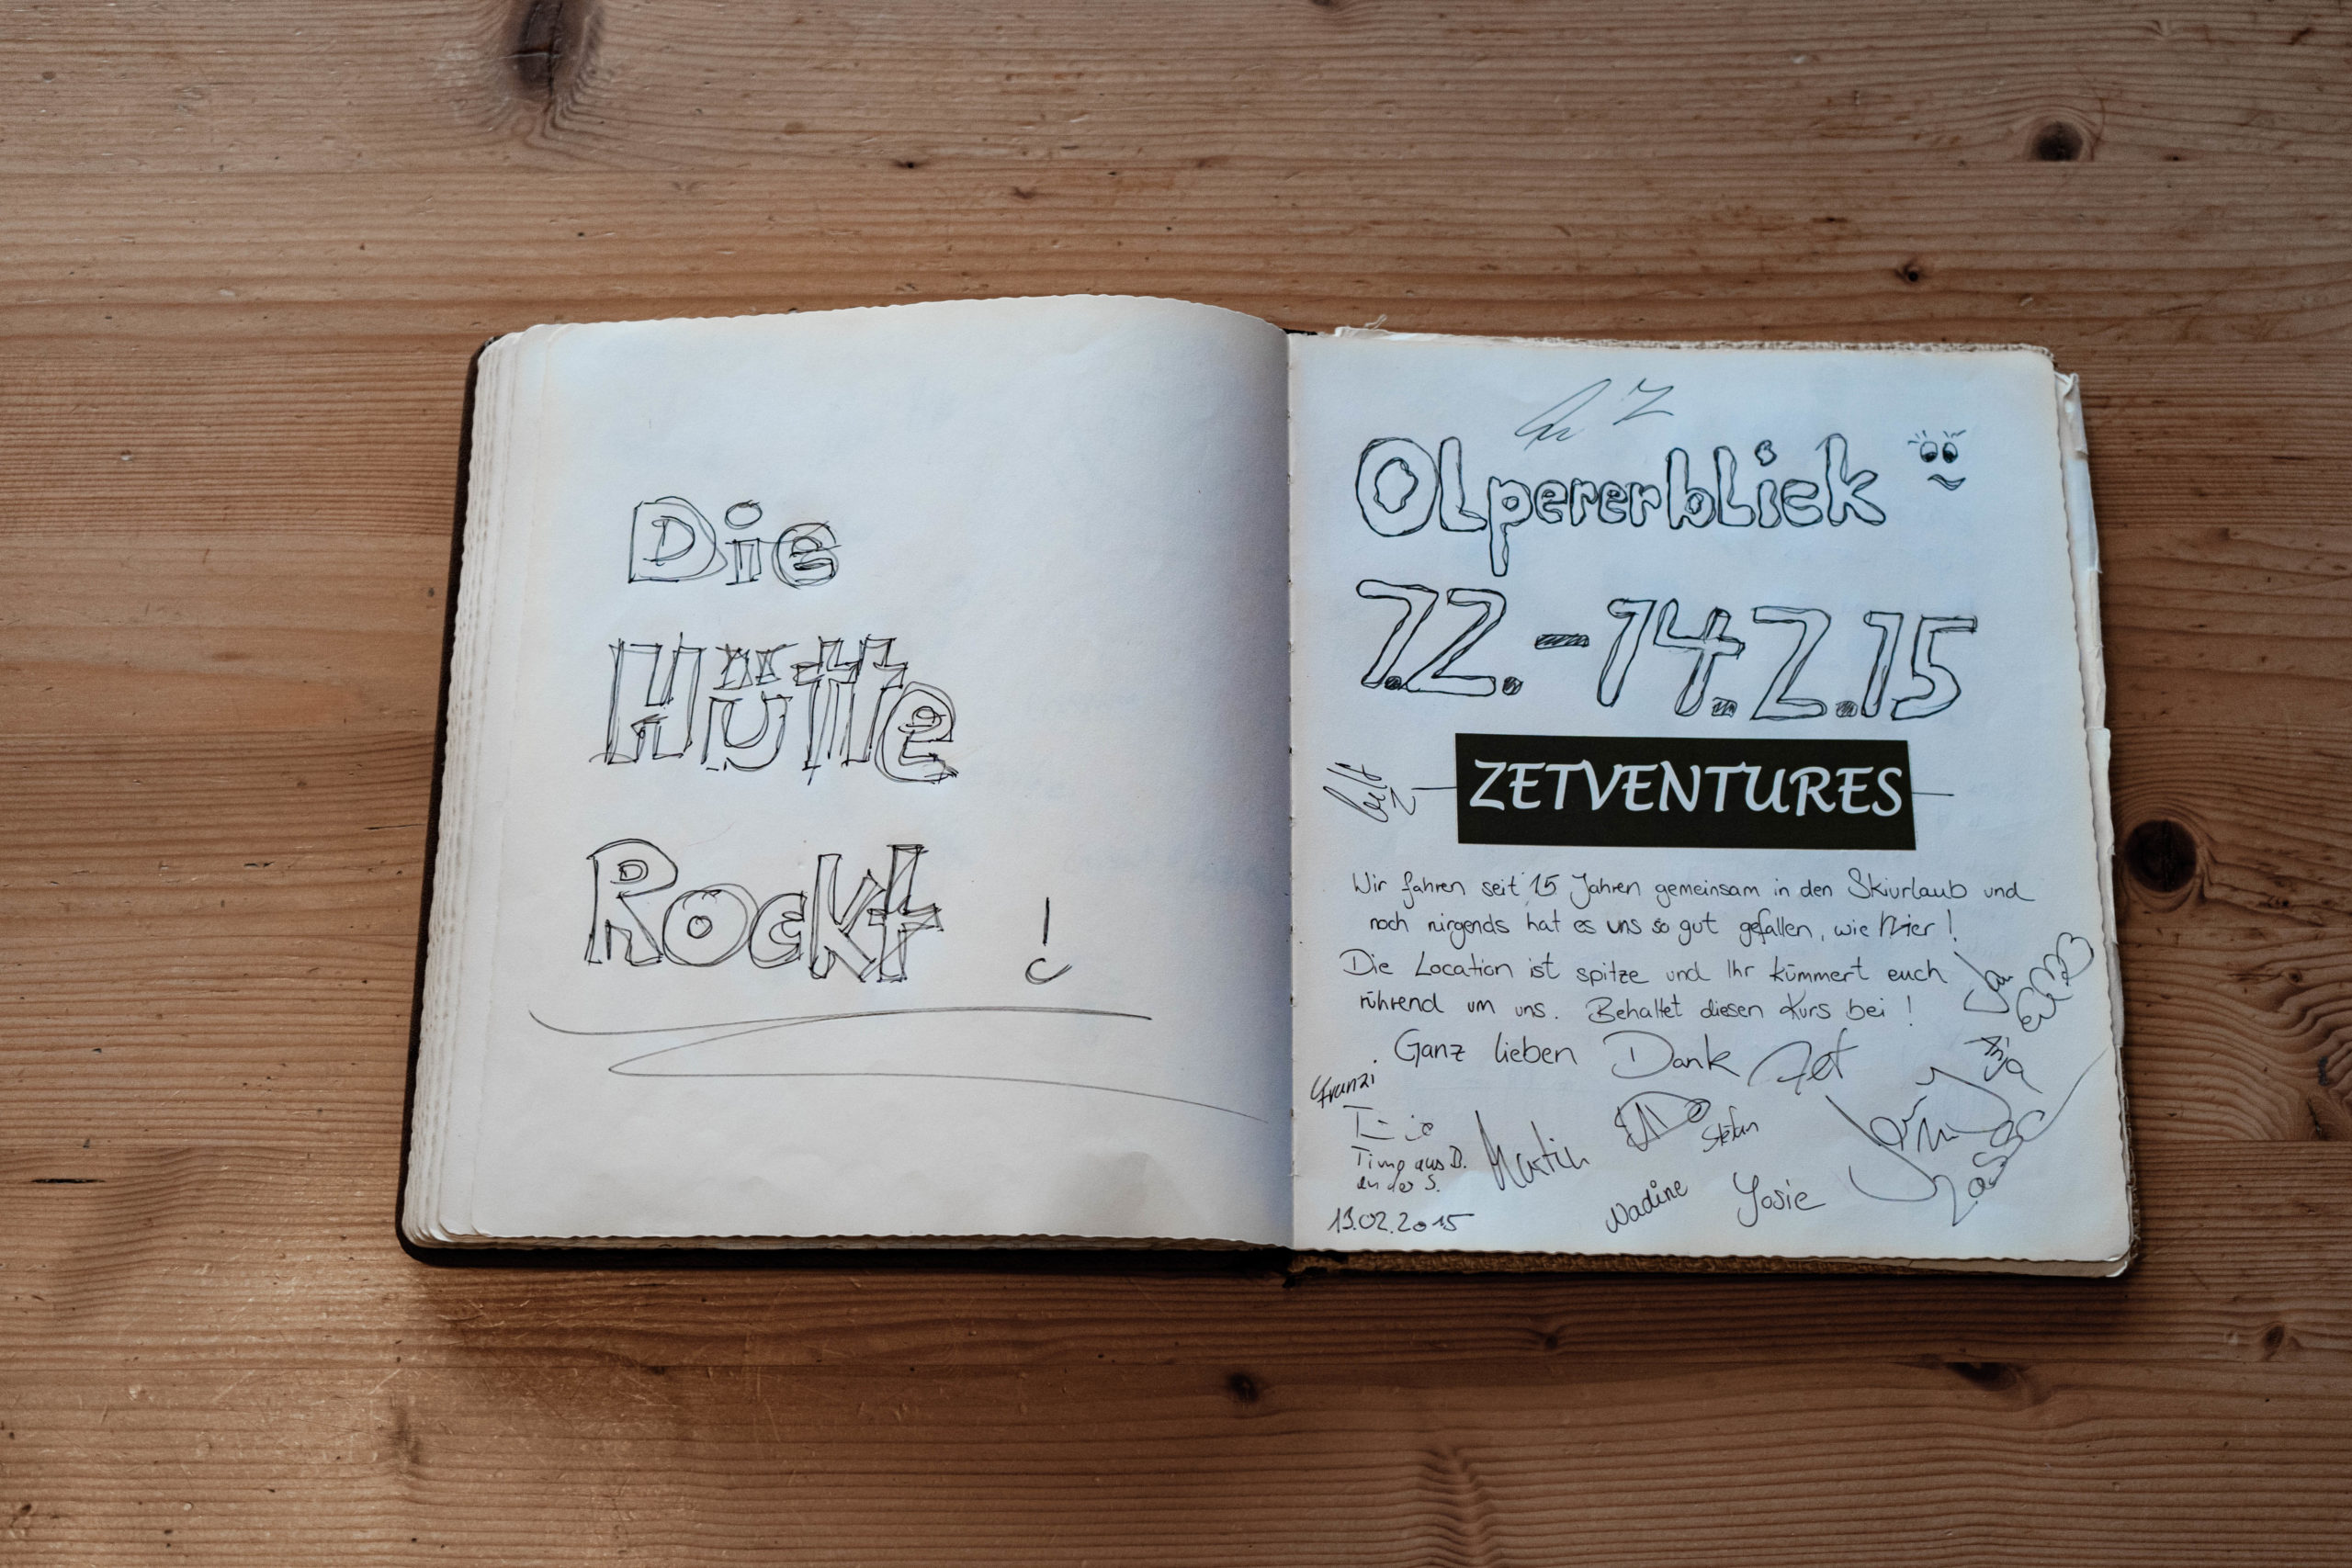 Die
Hütte
Rockt !
OLpererbLick
7.2.-14.2.15
ZETVENTURES
Wir fahren seit 15 Jahren gemeinsam in den Skiurlaub und
noch nirgends hat es uns so gut gefallen, wie hier!
Die Location ist spitze und Ihr kümmert euch
rührend um uns. Behaltet diesen Kurs bei !
Ganz lieben Dank
Jan
Anja
Franzi
Timo aus D.
an der S.
Martin
Stefan
Nadine
Josie
13.02.2015